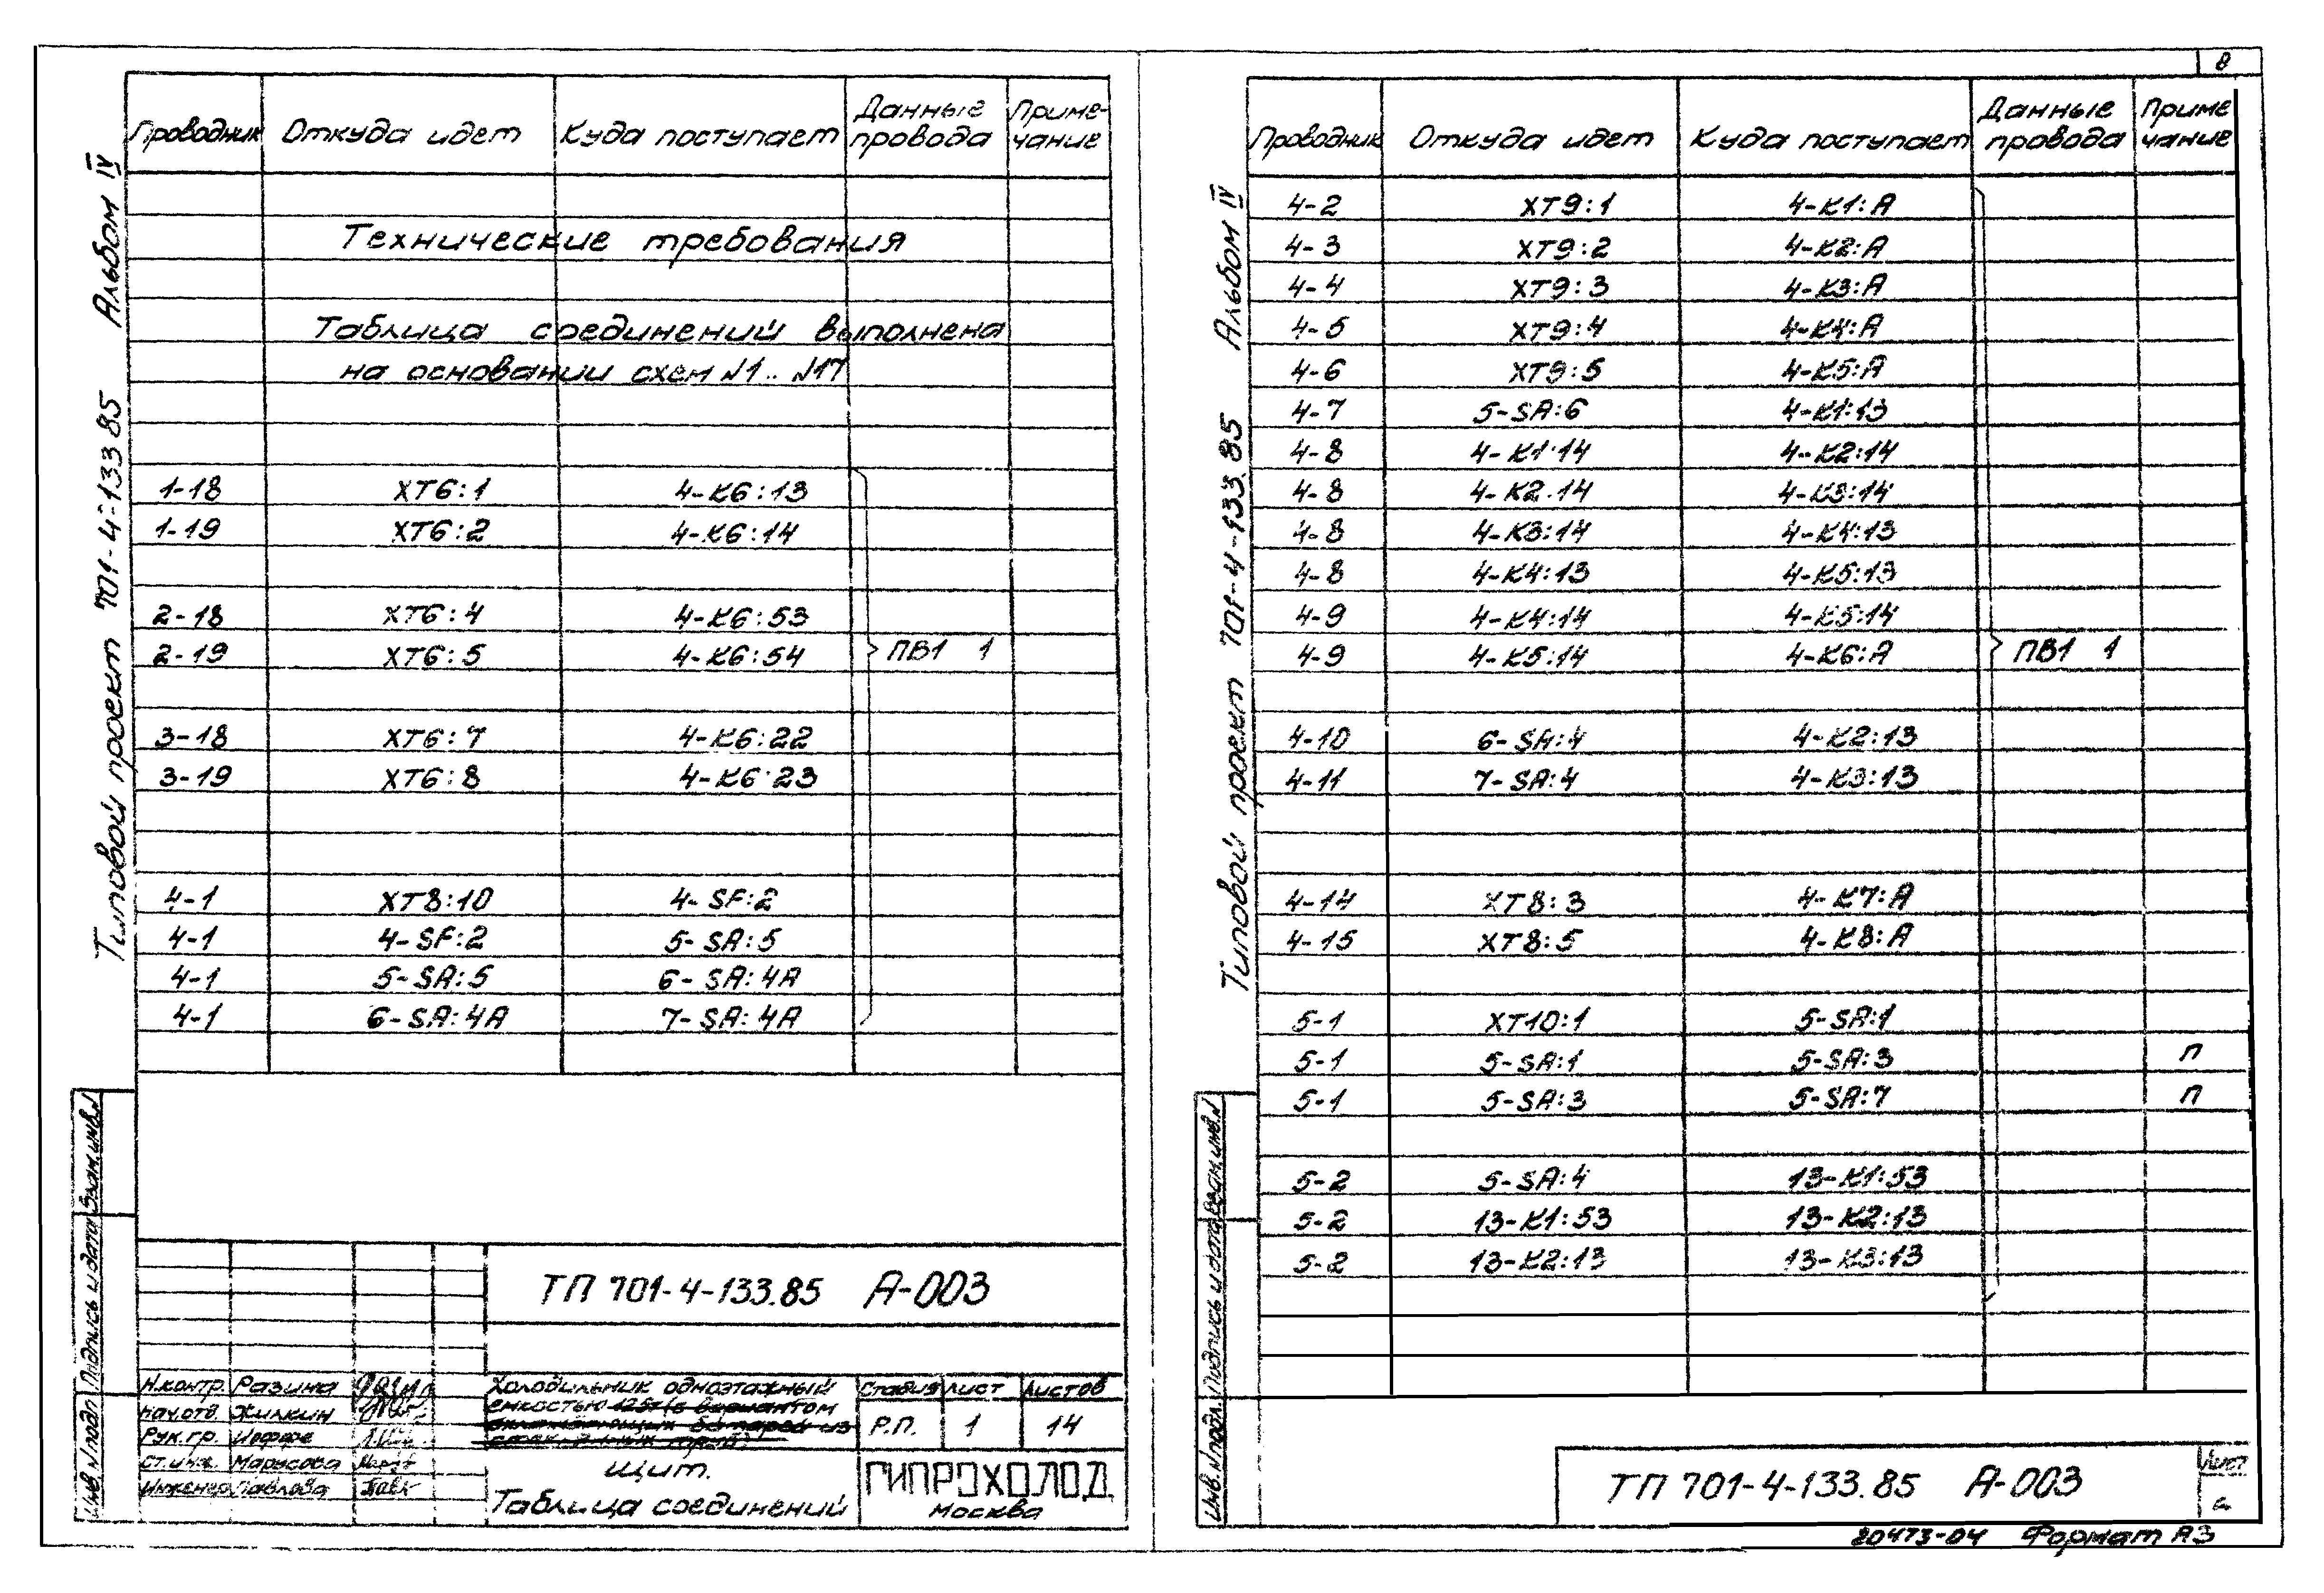 Типовой проект 701-4-133 85 Альбом IV
Проводник Откуда идет Куда поступает Данные провода Приме-чание
Технические требования
Таблица соединений выполнена
на основании схем N1.. N17
1-18 XT6:1 4-K6:13
1-19 XT6:2 4-K6:14
2-18 XT6:4 4-K6:53
2-19 XT6:5 4-K6:54 ПВ1 1
3-18 XT6:7 4-K6:22
3-19 XT6:8 4-K6:23
4-1 XT8:10 4-SF:2
4-1 4-SF:2 5-SA:5
4-1 5-SA:5 6-SA:4A
4-1 6-SA:4A 7-SA:4A
Инв.N подл. Подпись и дата Взам.инв.N
ТП 701-4-133.85 А-003
Н.контр. Разина
Нач.отд. Жилкин
Рук.гр. Иоффе
Ст.инж. Марусова
Инженер Павлова
Холодильник одноэтажный
емкостью 125т (с вариантом
Щит.
Таблица соединений
Стадия Лист Листов
Р.П. 1 14
ГИПРОХОЛОД
Москва
8
Типовой проект 701-4-133.85 Альбом IV
Проводник Откуда идет Куда поступает Данные провода Приме чание
4-2 XT9:1 4-K1:A
4-3 XT9:2 4-K2:A
4-4 XT9:3 4-K3:A
4-5 XT9:4 4-K4:A
4-6 XT9:5 4-K5:A
4-7 5-SA:6 4-K1:13
4-8 4-K1:14 4-K2:14
4-8 4-K2:14 4-K3:14
4-8 4-K3:14 4-K4:13
4-8 4-K4:13 4-K5:13
4-9 4-K4:14 4-K5:14
4-9 4-K5:14 4-K6:A ПВ1 1
4-10 6-SA:4 4-K2:13
4-11 7-SA:4 4-K3:13
4-14 XT8:3 4-K7:A
4-15 XT8:5 4-K8:A
5-1 XT10:1 5-SA:1
5-1 5-SA:1 5-SA:3 П
5-1 5-SA:3 5-SA:7 П
5-2 5-SA:4 13-K1:53
5-2 13-K1:53 13-K2:13
5-2 13-K2:13 13-K3:13
Инв.N подл. Подпись и дата Взам.инв.N
ТП 701-4-133.85 А-003
Лист
2
20473-04 Формат А3